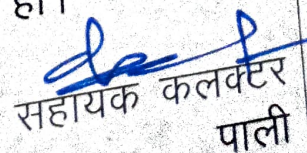 हो।
सहायक कलक्टर
पाली